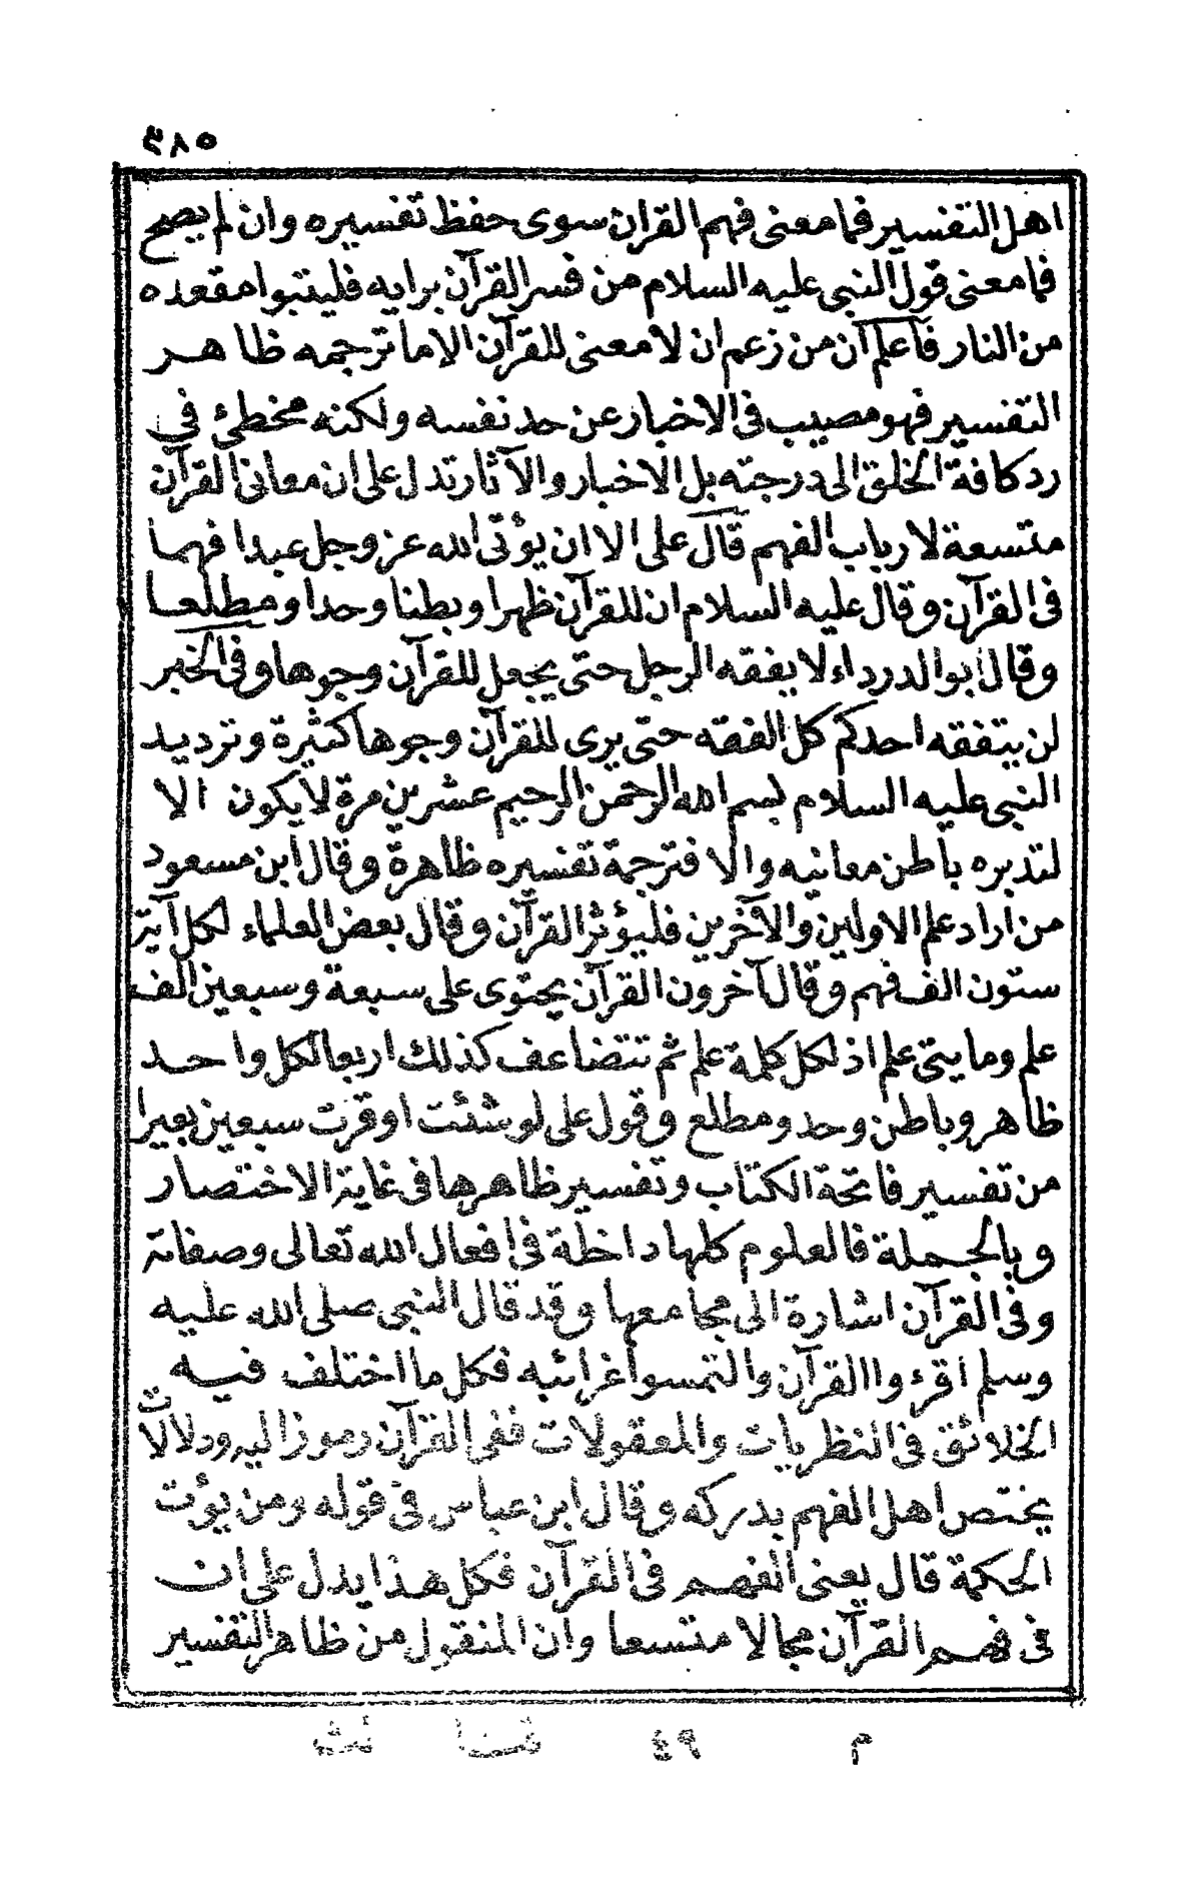 ٣٨٥
اهل التفسير فما معنى فهم القرآن سوى حفظ تفسيره وان لم يصح
فما معنى قول النبى عليه السلام من فسر القرآن برايه فليتبوا مقعده
من النار فاعلم ان من زعم ان لا معنى للقرآن الا ما ترجمه ظاهر
التفسير فهو مصيب فى الاخبار عن حد نفسه ولكنه مخطئ في
رد كافة الخلق الى درجته بل الاخبار والآثار تدل على ان معانى القرآن
متسعة لارباب الفهم قال على الا ان يؤتى الله عز وجل عبدا فهما
فى القرآن وقال عليه السلام ان للقرآن ظهرا وبطنا وحدا ومطلعا
وقال ابو الدرداء لا يفقه الرجل حتى يجعل للقرآن وجوها وفى الخبر
لن يتفقه احدكم كل الفقه حتى يرى للقرآن وجوها كثيرة وترديد
النبى عليه السلام بسم الله الرحمن الرحيم عشرين مرة لا يكون الا
لتدبره باطن معانيه والا فترجمة تفسيره ظاهرة وقال ابن مسعود
من اراد علم الاولين والآخرين فليؤثر القرآن وقال بعض العلماء لكل آية
ستون الف فهم وقال آخرون القرآن يحتوى على سبعة وسبعين الف
علم ومايتى علم اذ لكل كلمة علم ثم تتضاعف كذلك اربعا لكل واحد
ظاهر وباطن وحد ومطلع وقول على لو شئت اوقرت سبعين بعيرا
من تفسير فاتحة الكتاب وتفسير ظاهرها فى غاية الاختصار
وبالجملة فالعلوم كلها داخلة فى افعال الله تعالى وصفاته
وفى القرآن اشارة الى مجامعها وقد قال النبى صلى الله عليه
وسلم اقرءوا القرآن والتمسوا غرائبه فكل ما اختلف فيه
الخلائق فى النظريات والمعقولات ففى القرآن رموز اليه ودلالات
يختص اهل الفهم بدركه وقال ابن عباس فى قوله ومن يؤت
الحكمة قال يعنى الفهم فى القرآن فكل هذا يدل على ان
فى فهم القرآن مجالا متسعا وان المنقول من ظاهر التفسير
م ٤٩